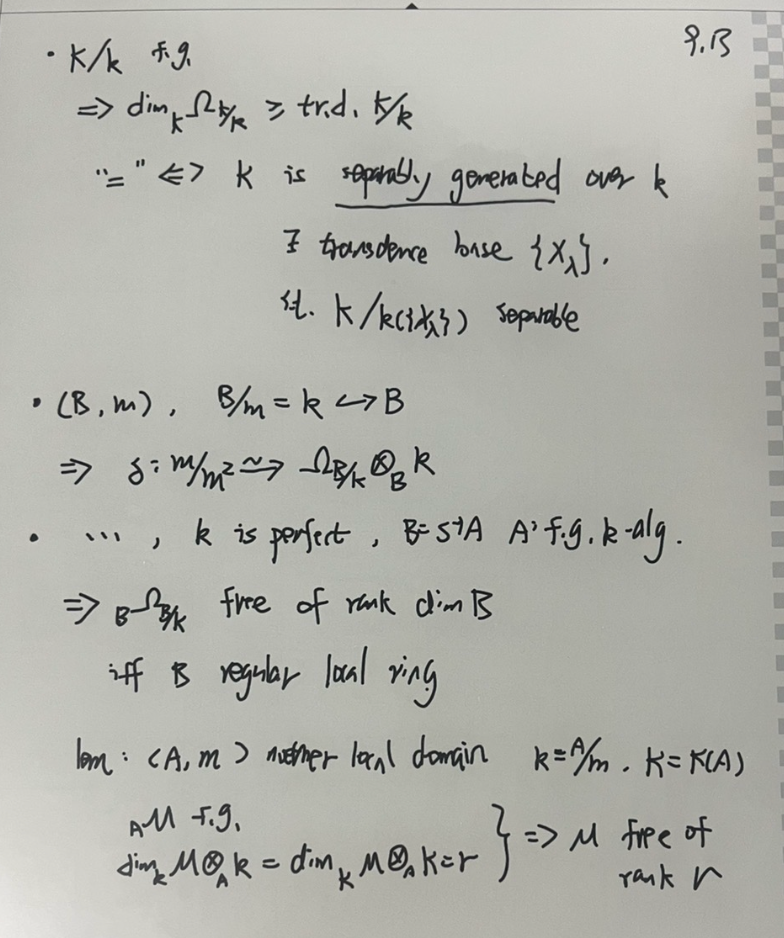 9.B
· K/k f.g.
⇒ dim_K Ω_{K/k} ≥ tr.d. K/k
"=" ⇔ K is separably generated over k
∃ transdence base {x_λ}.
s.t. K/k({x_λ}) separable
· (B, m), B/m = k ↪ B
⇒ δ: m/m² ≃→ Ω_{B/k} ⊗_B k
· ..., k is perfect, B = S⁻¹A A: f.g. k-alg.
⇒ _BΩ_{B/k} free of rank dim B
iff B regular local ring
lem: (A, m) noether local domain k = A/m. K = K(A)
_AM f.g.
dim_k M⊗_A k = dim_K M⊗_A K = r } ⇒ M free of
rank r